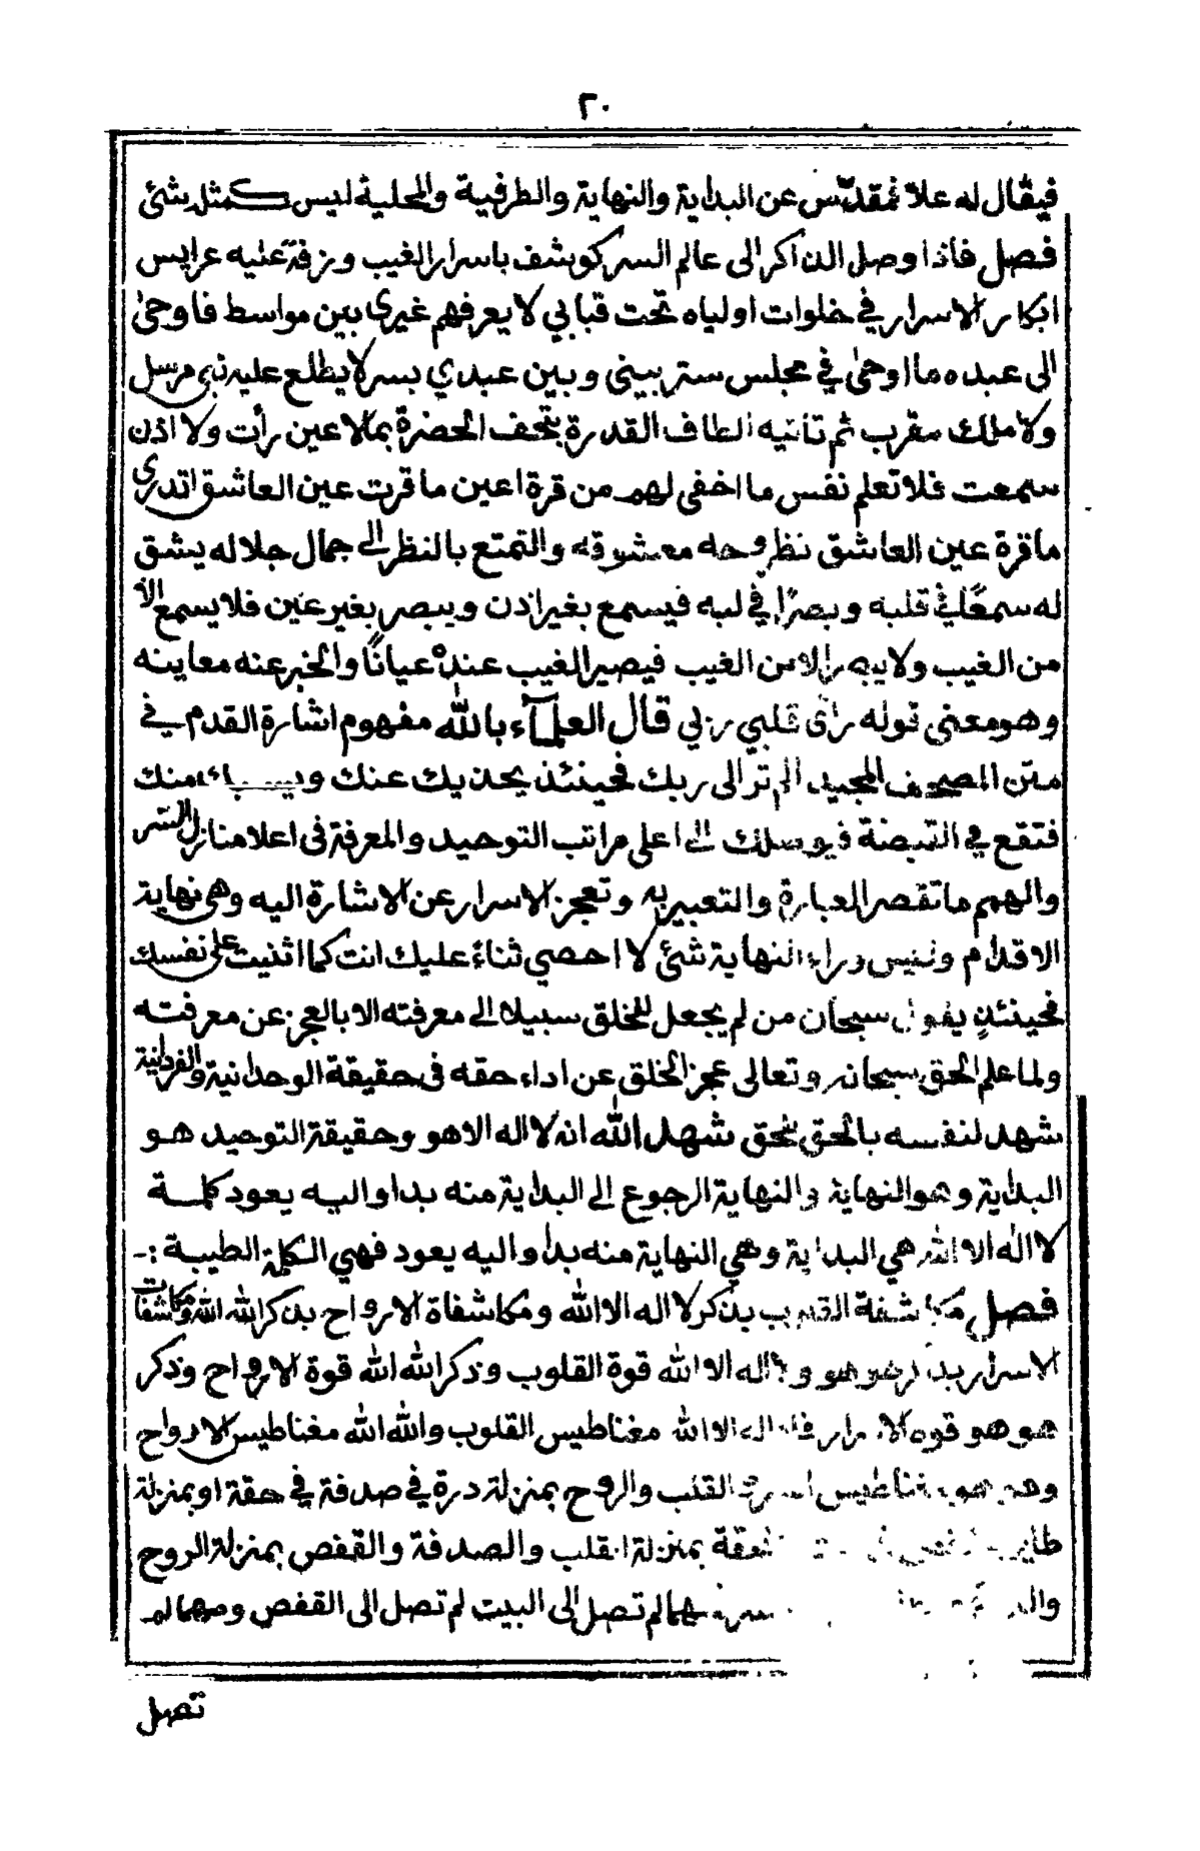 ٢٠
فيقال له علا تمقدّس عن البداية والنهاية والظرفية والمحلية ليس كمثله شئ
فصل فاذا وصل الذاكر الى عالم السر كوشف باسرار الغيب وزفة عليه عرايس
ابكار الاسرار في خلوات اولياه تحت قبابي لا يعرفهم غيري بين مواسط فاوحى
الى عبده ما اوحى في مجلس ستر بيني وبين عبدي بسر لا يطلع عليه نبي مرسل
ولا ملك مقرب ثم تاتيه الطاف القدرة بتحف الحضرة بما لا عين رأت ولا اذن
سمعت فلا تعلم نفس ما اخفى لهم من قرة اعين ما قرت عين العاشق اتدري
ما قرة عين العاشق نظر وجه معشوقه والتمتع بالنظر الى جمال جلاله يشق
له سمعًا في قلبه وبصرًا في لبه فيسمع بغير اذن ويبصر بغير عين فلا يسمع الا
من الغيب ولا يبصر الا من الغيب فيصير الغيب عنده عيانًا والخبر عنه معاينه
وهو معنى قوله راى قلبي ربي قال العلمآء بالله مفهوم اشارة القدم في
متن المصحف المجيد الم تر الى ربك فحينئذ يجذبك عنك ويسلبك منك
فتقع في القبضة فيوصلك الى اعلى مراتب التوحيد والمعرفة فى اعلا منازل السر
والهمم ما تقصر العبارة والتعبير به وتعجز الاسرار عن الاشارة اليه وهى نهاية
الاقدام وليس وراء النهاية شئ لا احصي ثناءً عليك انت كما اثنيت على نفسك
فحينئذٍ يقول سبحان من لم يجعل للخلق سبيلا الى معرفته الا بالعجز عن معرفته
ولما علم الحق سبحانه وتعالى عجز الخلق عن اداء حقه فى حقيقة الوحدانية والفردانية
شهد لنفسه بالحق للحق شهد الله انه لا اله الا هو وحقيقة التوحيد هو
البداية وهو النهاية والنهاية الرجوع الى البداية منه بدا واليه يعود كلمة
لا اله الا الله هي البداية وهي النهاية منه بدا واليه يعود فهي الكلمة الطيبة :-
فصل مكاشفة القلوب بذكر لا اله الا الله ومكاشفاة الارواح بذكر الله الله ومكاشفات
الاسرار بذكر هو هو ولا اله الا الله قوة القلوب وذكر الله الله قوة الارواح وذكر
هو هو قوة الاسرار فلا اله الا الله مغناطيس القلوب والله الله مغناطيس الارواح
وهو هو مغناطيس السر القلب والروح بمنزلة درة في صدفة في حقة او بمنزلة
طاير قفص بمنزلة القلب والصدفة والقفص بمنزلة الروح
لم تصل الى البيت لم تصل الى القفص ومهما لم
تصل